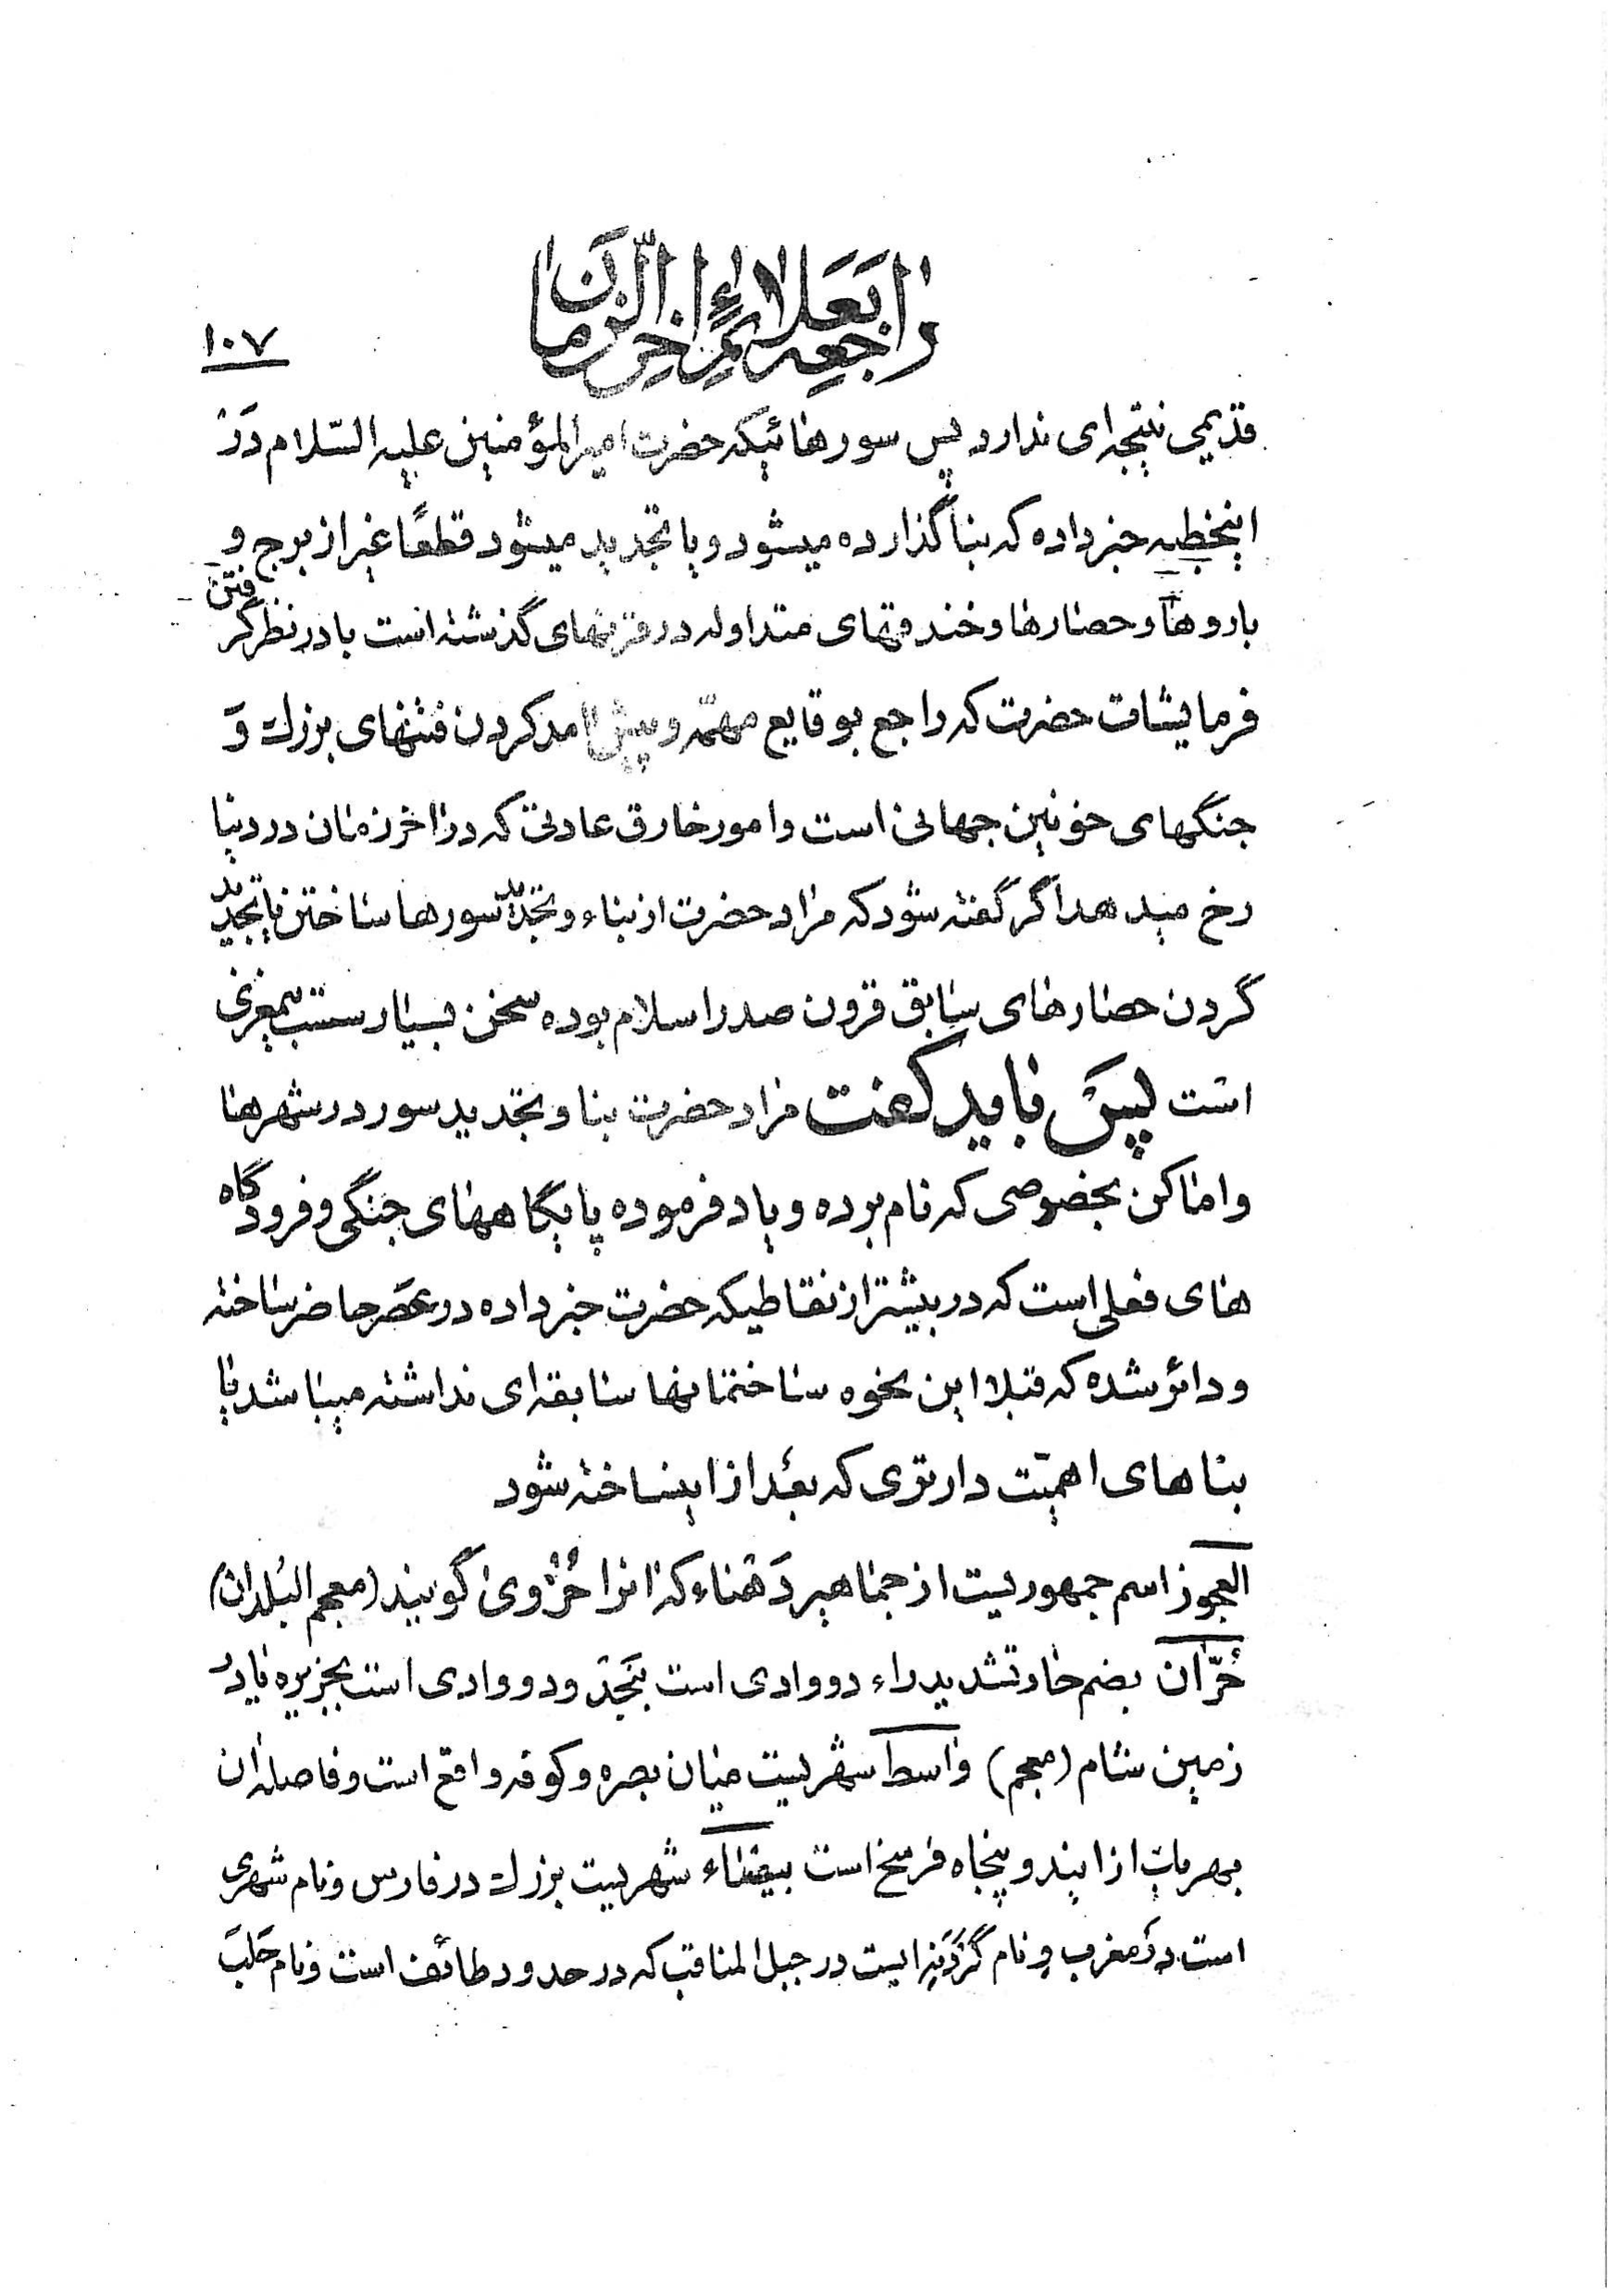 راجعه بعلائم اخر الزمان
۱۰۷
قدیمی نتیجه‌ای ندارد پس سورهائیکه حضرت امیرالمؤمنین علیه السّلام در
اینخطبه خبر داده که بنا گذارده میشود و یا تجدید میشود قطعًا غیر از برج و
باروها و حصارها و خندقهای متداوله در قرنهای گذشته است با در نظر گرفتن
فرمایشات حضرت که راجع بوقایع مهمّه و پیش امد کردن فتنهای بزرك و
جنگهای خونین جهانی است و امور خارق عادتی که در اخر زمان در دنیا
رخ میدهد اگر گفته شود که مراد حضرت از بناء و تجدید سورها ساختن یا تجدید
کردن حصارهای سابق قرون صدر اسلام بوده سخن بسیار سست بیمغزی
است پس باید گفت مراد حضرت بنا و تجدید سور در شهرها
و اماکن بخصوصی که نام برده و یاد فرموده پایگاههای جنگی و فرودگاه
های فعلی است که در بیشتر از نقاطیکه حضرت خبر داده در عصر حاضر ساخته
و دائر شده که قبلا این نحوه ساختمانها سابقه‌ای نداشته میباشد یا
بناهای اهمیّت دارتری که بعد از این ساخته شود
العجوز اسم جمهوریست از جماهیر دَهناء که انرا حُزْوی گویند (معجم البلدان)
حُرّان بضم حا و تشدید راء دو وادی است بنجد و دو وادی است بجزیره یا در
زمین شام (معجم) واسط شهریست میان بصره و کوفه واقع است و فاصله ان
بهر یك از ایندو پنجاه فرسخ است بیضاء شهریست بزرك در فارس و نام شهری
است در مغرب و نام گردنه ایست در جبل المناقب که در حدود طائف است و نام حلب